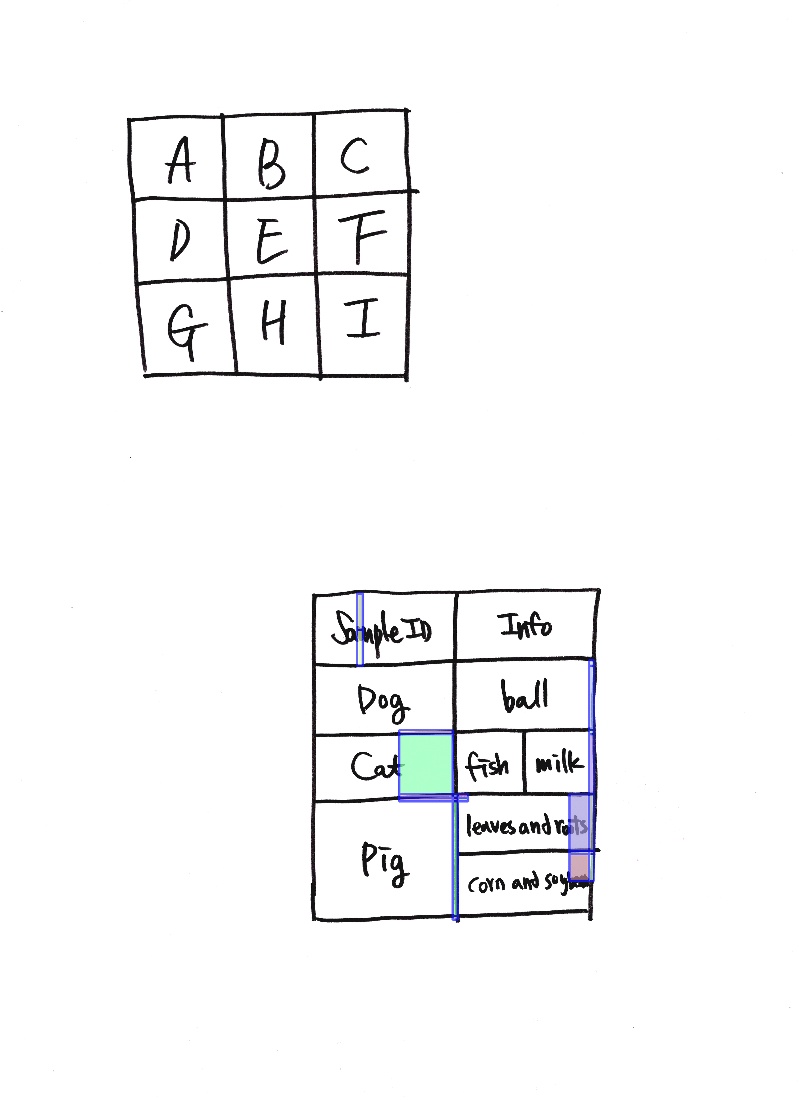 A B C
D E F
G H I
Sample ID Info
Dog ball
Cat fish milk
Pig leaves and roots
corn and